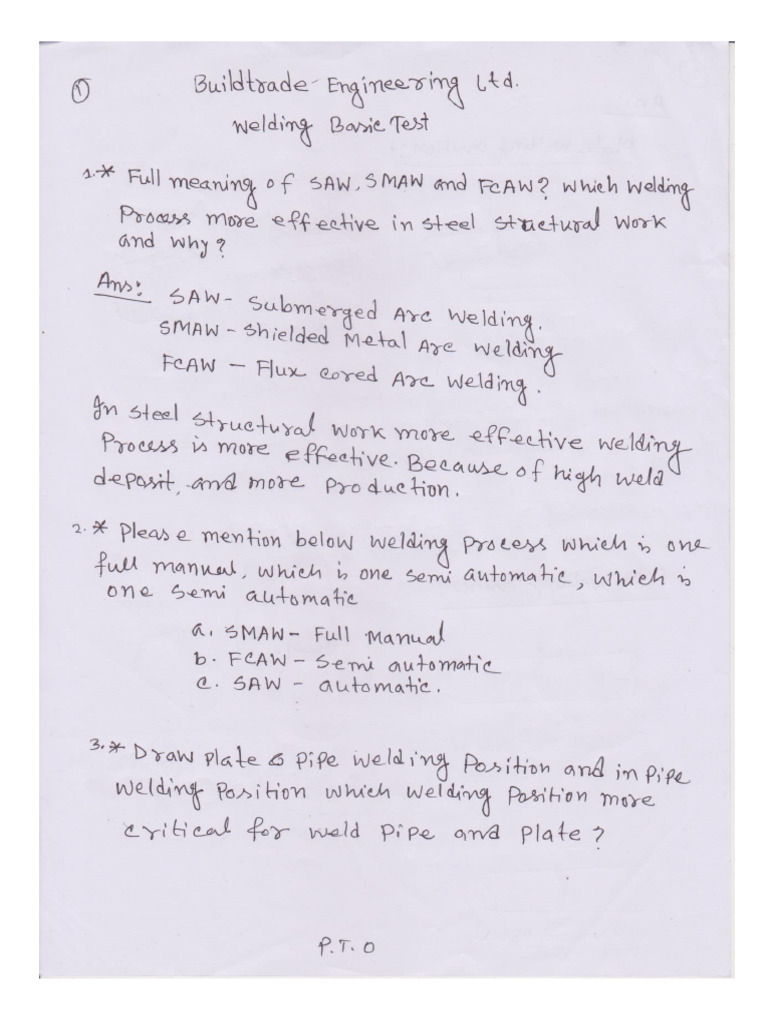 ①
Buildtrade Engineering Ltd.
Welding Basic Test
1.* Full meaning of SAW, SMAW and FCAW? Which Welding
Process more effective in steel structural work
and why?
Ans: SAW- Submerged Arc Welding.
SMAW - Shielded Metal Arc Welding
FCAW - Flux cored Arc Welding.
In steel structural work more effective welding
Process is more effective. Because of high weld
deposit, and more production.
2.* Please mention below welding process which is one
full manual, which is one semi automatic, which is
one semi automatic
a. SMAW- Full Manual
b. FCAW - Semi automatic
c. SAW - automatic.
3.* Draw plate & pipe welding Position and in Pipe
welding Position which welding Position more
critical for weld pipe and plate?
P.T.O